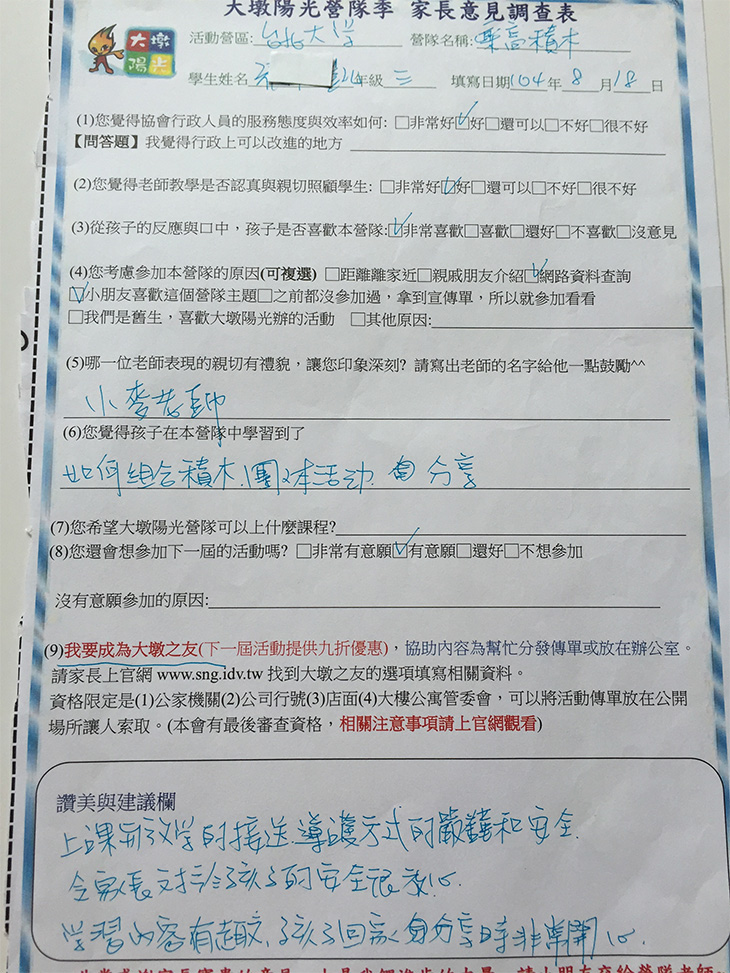 大墩陽光營隊季 家長意見調查表
大墩
陽光
活動營區: 台北大學 營隊名稱: 樂高積木
學生姓名 年級 三 填寫日期 104 年 8 月 18 日
(1)您覺得協會行政人員的服務態度與效率如何: □非常好☑好□還可以□不好□很不好
【問答題】我覺得行政上可以改進的地方
(2)您覺得老師教學是否認真與親切照顧學生: □非常好☑好□還可以□不好□很不好
(3)從孩子的反應與口中，孩子是否喜歡本營隊:☑非常喜歡□喜歡□還好□不喜歡□沒意見
(4)您考慮參加本營隊的原因(可複選) □距離離家近□親戚朋友介紹☑網路資料查詢
☑小朋友喜歡這個營隊主題□之前都沒參加過，拿到宣傳單，所以就參加看看
□我們是舊生，喜歡大墩陽光辦的活動 □其他原因:
(5)哪一位老師表現的親切有禮貌，讓您印象深刻? 請寫出老師的名字給他一點鼓勵^^
小麥老師
(6)您覺得孩子在本營隊中學習到了
如何組合積木.團体活動. 分享
(7)您希望大墩陽光營隊可以上什麼課程?
(8)您還會想參加下一屆的活動嗎? □非常有意願☑有意願□還好□不想參加
沒有意願參加的原因:
(9)我要成為大墩之友(下一屆活動提供九折優惠)，協助內容為幫忙分發傳單或放在辦公室。
請家長上官網 www.sng.idv.tw 找到大墩之友的選項填寫相關資料。
資格限定是(1)公家機關(2)公司行號(3)店面(4)大樓公寓管委會，可以將活動傳單放在公開
場所讓人索取。(本會有最後審查資格，相關注意事項請上官網觀看)
讚美與建議欄
上課到放學的接送.導護方式的嚴謹和安全.
令家長對於孩子的安全很放心.
學習內容有趣, 孩子回家 分享時非常開心.